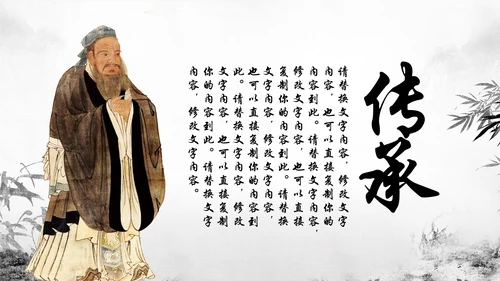 传承
请替换文字内容，修改文字
内容，也可以直接复制你的
内容到此。请替换文字内容，
修改文字内容，也可以直接
复制你的内容到此。请替换
文字内容，修改文字内容，
也可以直接复制你的内容到
此。请替换文字内容，修改
文字内容，也可以直接复制
你的内容到此。请替换文字
内容，修改文字内容。